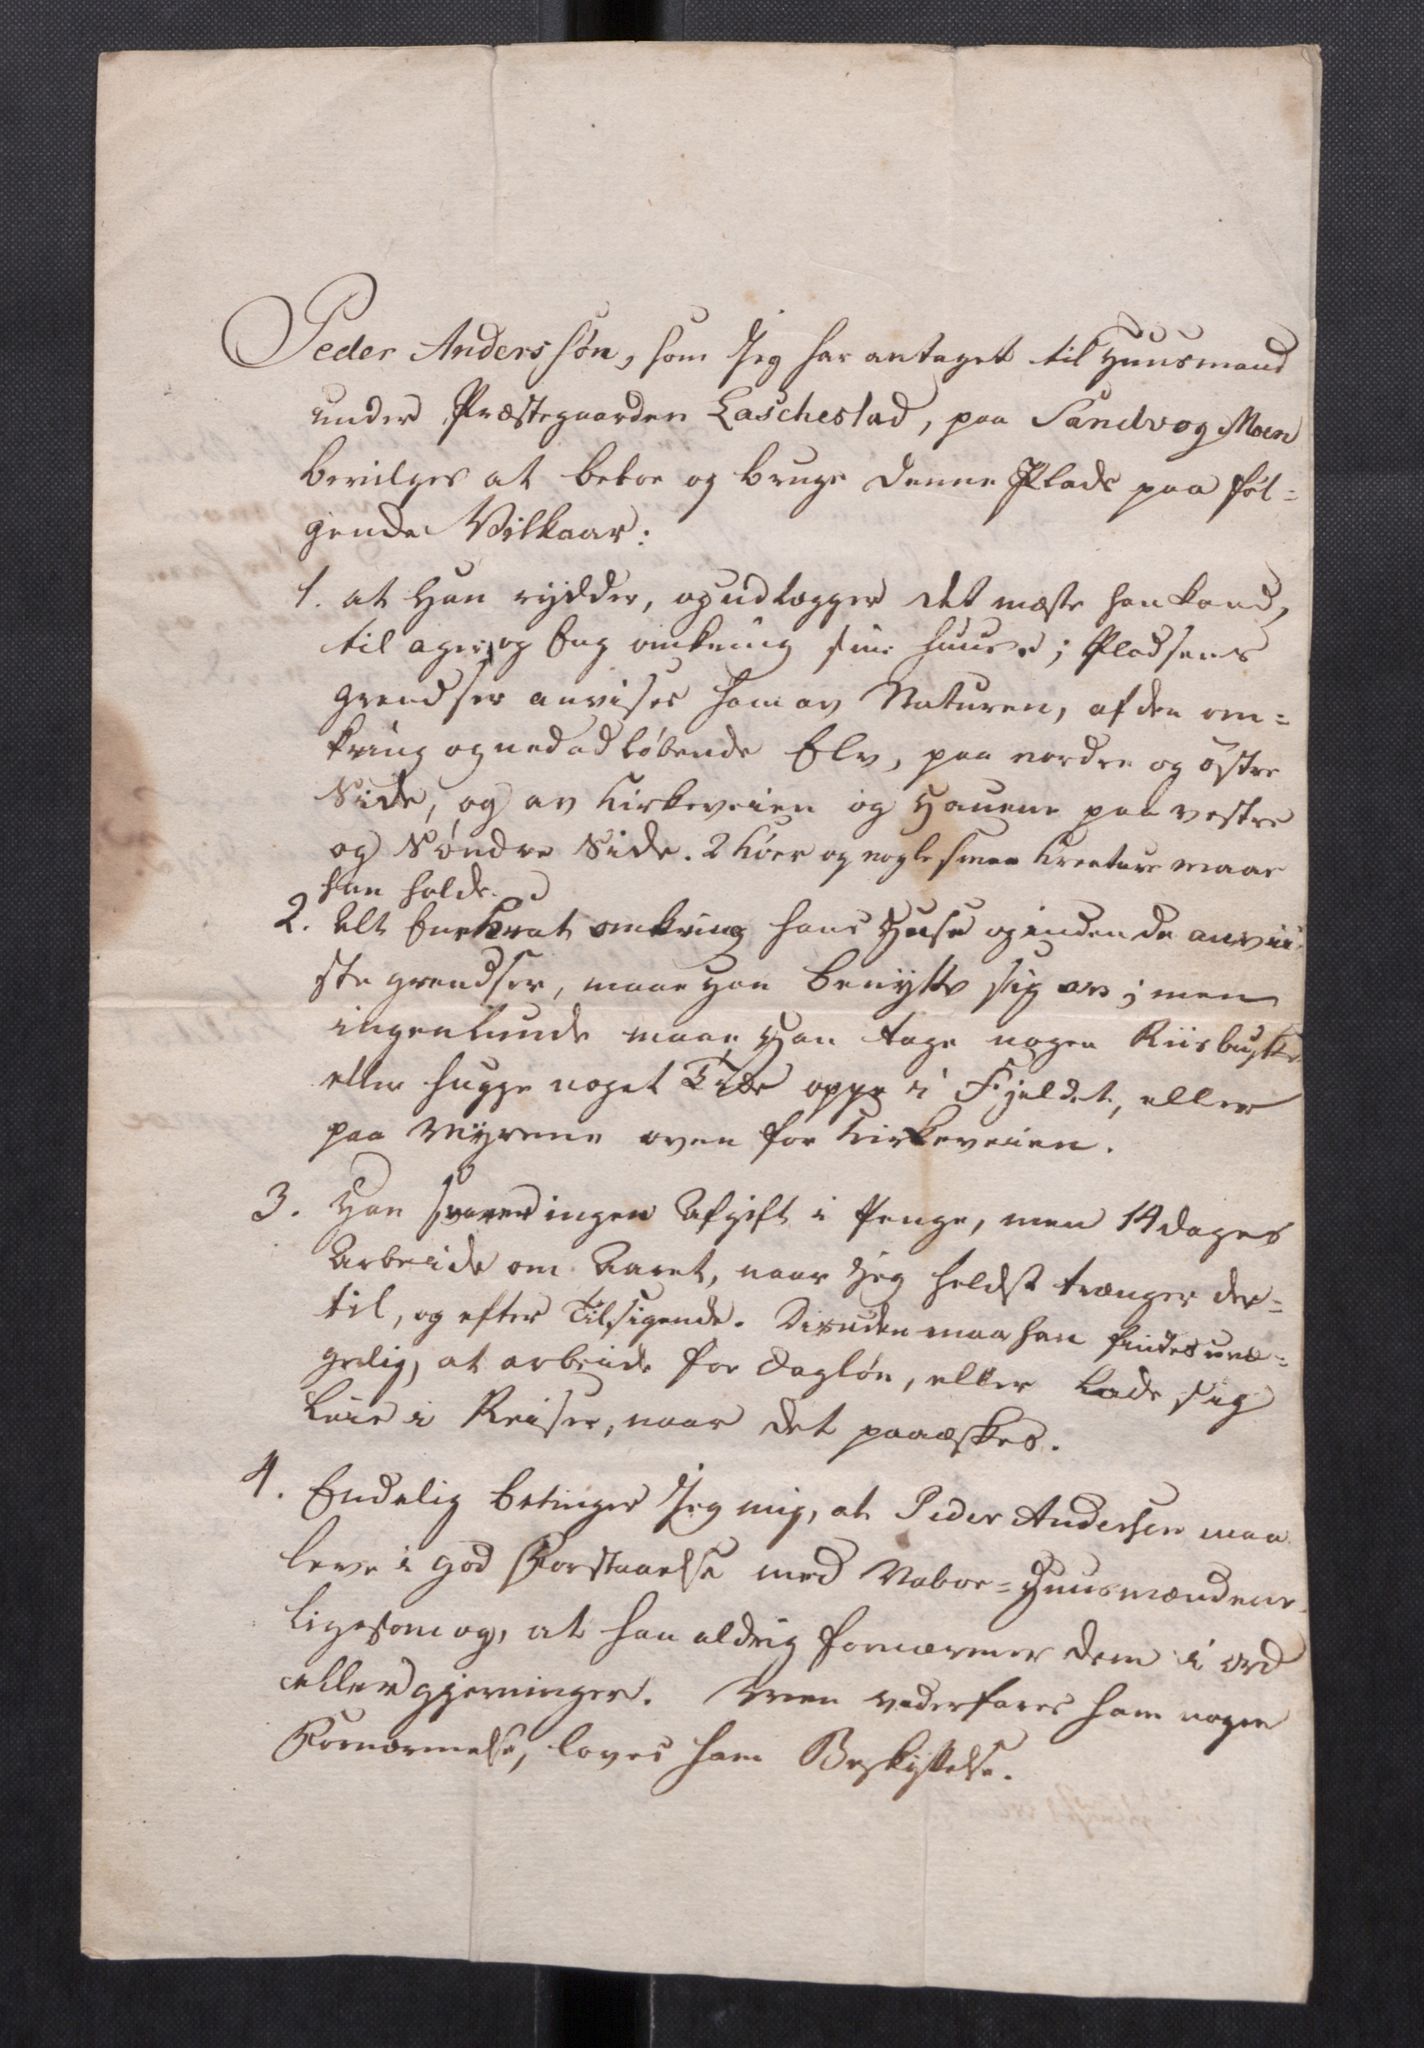 Peder Anderssøn, som Jeg har antaget til Huusmand
under Præstegaarden Laschestad, paa Sandvog Moen
bevilges at beboe og bruge denne Plads paa føl=
gende Vilkaar:
1. at Han rydder, og udlægger det mæste han kand,
til ager og Eng omkring sine Huuse; Pladsens
grendser anvises ham av Naturen, af den om=
kring og nedad løbende Elv, paa nordre og østre
Side, og av Kirkeveien og Hauene paa vestre
og Søndre Side. 2 Kóer og nogle smaa Kreature maae
han holde.
2. Alt Enekrat omkring hans Huse og inden de anvii
ste grendser, maae Han benytte sig av; men
ingenlunde maae Han tage nogen Riisbuske
eller hugge noget Træe oppe i Fjeldet, eller
paa Myrene oven for Kirkeveien.
3. Han svarer ingen Afgift i Penge, men 14 dages
Arbeide om Aaret, naar Jeg heldst trænger der=
til, og efter Tilsigende. Desuden maa han findes uvæ=
gerlig, at arbeide for Dagløn, eller lade sig
leie i Reiser, naar det paaæskes.
4. Endelig betinger Jeg mig, at Peder Andersen maa
leve i god Forstaaelse med Naboe=Huusmændene
ligesom og, at han aldrig fornærmer dem i ord
eller gjerninger. Men vederfares ham nogen
Fornærmelse, loves ham Beskyttelse.